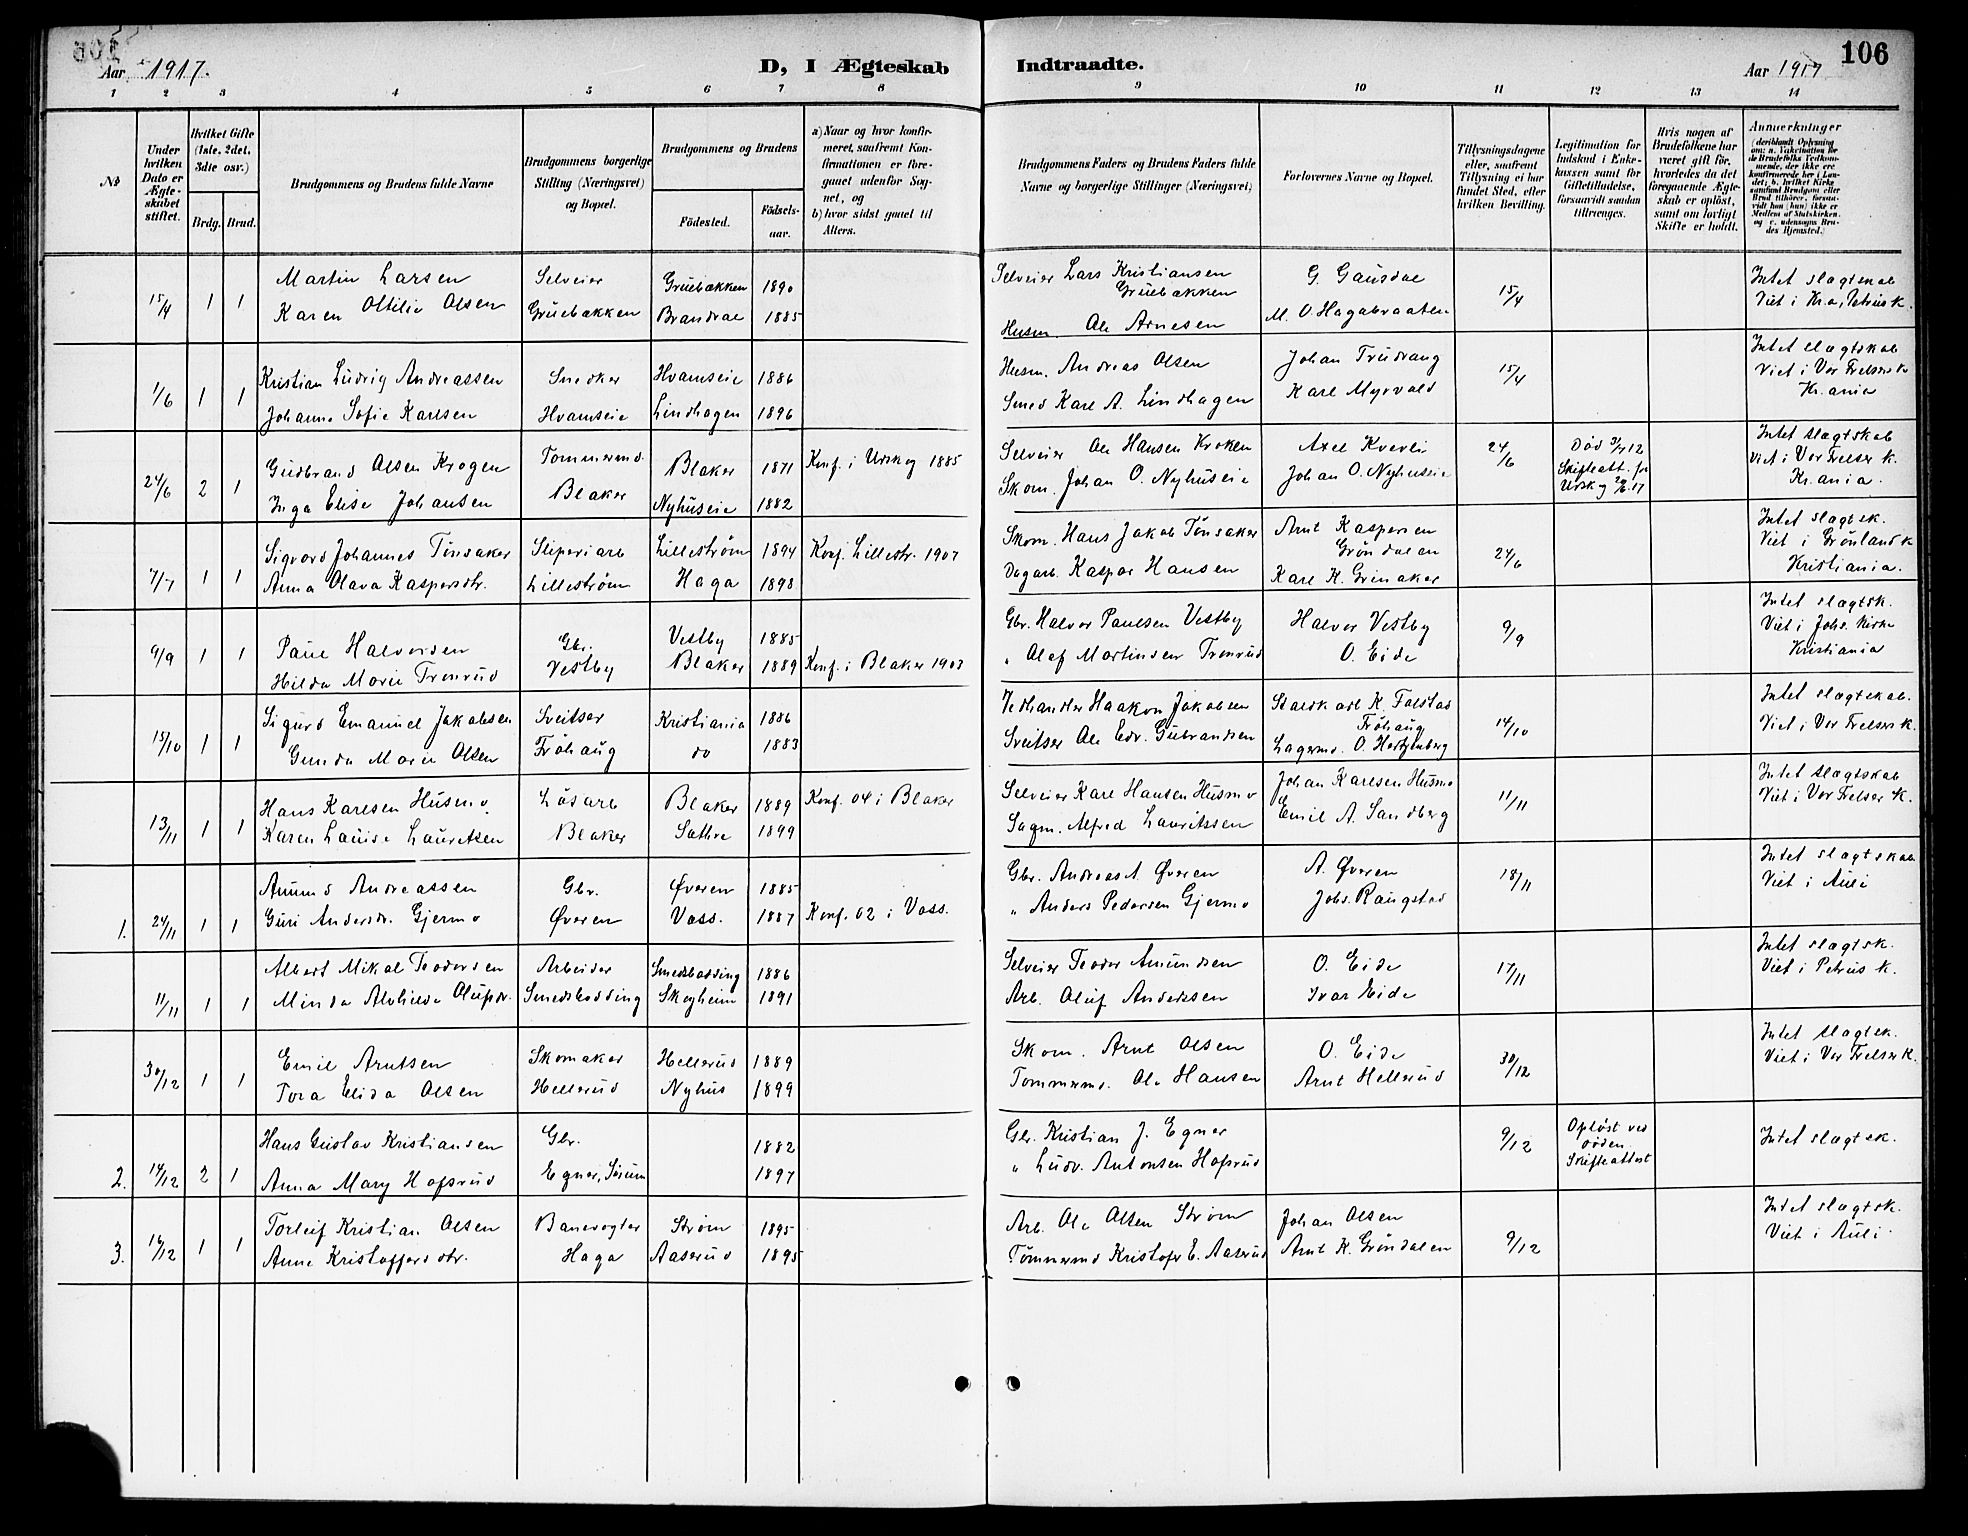 106
Aar 1917.
D, I Ægteskab Indtraadte.
Aar 1917
1 2 3 4 5 6 7 8 9 10 11 12 13 14
No
Under hvilken Dato er Ægteskabet stiftet.
Hvilket Gifte (1ste, 2det, 3die osv.)
Brdg. Brud.
Brudgommens og Brudens fulde Navne
Brudgommens borgerlige Stilling (Næringsvei) og Bopæl.
Brudgommens og Brudens
Födested.
Födselsaar.
a) Naar og hvor konfirmeret, saafremt Konfirmationen er foregaaet udenfor Sognet, og
b) hvor sidst gaaet til Alters.
Brudgommens Faders og Brudens Faders fulde Navne og borgerlige Stillinger (Næringsvei)
Forlovernes Navne og Bopæl.
Tillysningsdagene eller, saafremt Tillysning ei har fundet Sted, efter hvilken Bevilling.
Legitimation for Indskud i Enkekassen samt for Giftetilladelse, forsaavidt saadan tiltrænges.
Hvis nogen af Brudefolkene har været gift før, hvorledes da det foregaaende Ægteskab er opløst, samt om lovligt Skifte er holdt.
Anmærkninger
(deriblandt Oplysning om: a. Vakcination for de Brudefolks Vedkommende, der ikke ere konfirmerede her i Landet; b. hvilket Kirkesamfund Brudgom eller Brud tilhører, forsaavidt han (hun) ikke er Medlem af Statskirken, og c. udensogns Brudes Hjemsted.)
15/4 1 1 Martin Larsen Selveier Gruebakken 1890 Selveier Lars Kristiansen Gruebakken G. Gausdal 15/4 Intet slagtskab
Karen Ottilie Olsen Gruebakken Brandval 1885 Husm. Ole Arnesen M. O. Hagabraaten Viet i Kr.a, Petrus k.
1/6 1 1 Kristian Ludvig Andreassen Snedker Hvamseie 1886 Husm. Andreas Olsen Johan Trudvang 15/4 Intet slægtskab
Johanne Sofie Karlsen Hvamseie Lindhagen 1896 Smed Karl A. Lindhagen Karl Myrvold Viet i Vor Frelsers k Kr.ania
24/6 2 1 Gudbrand Olsen Krogen Tømmermd. Blaker 1871 Konf. i Urskog 1885 Selveier Ole Hansen Kroken Axel Kverli 24/6 Død 31/7 12 Intet slægtskab
Inga Elise Johansen Blaker Nyhuseie 1882 Skom. Johan O. Nyhuseie Johan O. Nyhuseie Skifteatt. fr Urskog 20/6.17 Viet i Vor Frelser k. Kr.ania.
7/7 1 1 Sigvard Johannes Tönsaker Sliperiarb Lilleström 1894 Konf. Lillestr. 1907 Skom. Hans Jakob Tönsaker Arnt Kaspersen Gröndalen 24/6 Intet slægtsk.
Anna Olava Kaspersdtr. Lilleström Haga 1898 Dagarb. Kaspar Hansen Karl K. Grinaker Viet i Grønland k Kristiania.
9/9 1 1 Paul Halvorsen Gbr. Vestby 1885 Gbr. Halvor Paulsen Vestby Halvor Vestby 9/9 Intet slægtsk.
Hilda Marie Tronrud Vestby Blaker 1889 Konf. i Blaker 1903 " Olaf Martinsen Tronrud O. Eide Viet i Johs. Kirke Kristiania
15/10 1 1 Sigurd Emanuel Jakobsen Sveitser Kristiania 1886 Vedhandler Haakon Jakobsen Staldkarl K. Folstad Fröhaug 14/10 Intet slægtskab.
Gunda Marie Olsen Fröhaug do 1883 Sveitser Ole Edv. Gubrandsen Lagermd. O. Hertzenberg Viet i Vor Frelsers k.
13/11 1 1 Hans Karlsen Husmo Lösarb Blaker 1889 Konf. 04 i Blaker Selveier Karl Hansen Husmo Johan Karlsen Husmo 11/11 Intet slægtskab
Karen Louise Lauritsen Blaker Sethre 1899 Sagm. Alfred Lauritssen Emil A. Sandberg Viet i Vor Frelser K.
1. 24/11 1 1 Amund Andreassen Gbr. Øveren 1885 Gbr. Andreas A. Øveren A. Øveren 18/11 Intet slægtskab
Guri Andersdr. Gjermo Øveren Voss. 1887 Konf. 02 i Voss. " Anders Pedersen Gjermo Johs. Raugstad Viet i Auli
11/11 1 1 Albert Mikal Teodorsen Arbeider Smedsbodding 1886 Selveier Teodor Amundsen O. Eide 17/11 Intet slægtsk.
Minda Alvhilda Olufsdr. Smedsbodding Skogheim 1891 Arb. Oluf Anderssen Ivar Eide Viet i Petrus k.
30/12 1 1 Emil Arntsen Skomaker Hellerud 1889 Skom. Arnt Olsen O. Eide 30/12 Intet slægtsk.
Tora Elida Olsen Hellerud Nyhus 1899 Tømmermd. Ole Hansen Arnt Hellerud Viet i Vor Frelser k.
2. 14/12 2 1 Hans Gustav Kristiansen Gbr. 1882 Gbr. Kristian J. Egner 9/12 Opløst ved døden Intet slægtsk.
Anna Mary Hofsrud Egner, Sörum 1897 " Ludv. Antonsen Hofsrud Skifteattest
3. 16/12 1 1 Torleif Kristian Olsen Banevogter Ström 1895 Arb. Ole Olsen Ström Johan Olsen 9/12 Intet slægtsk.
Anne Kristoffersdtr. Haga Aaserud 1895 Tømmermd Kristofer E. Aaserud Arnt K. Gröndalen Viet i Auli